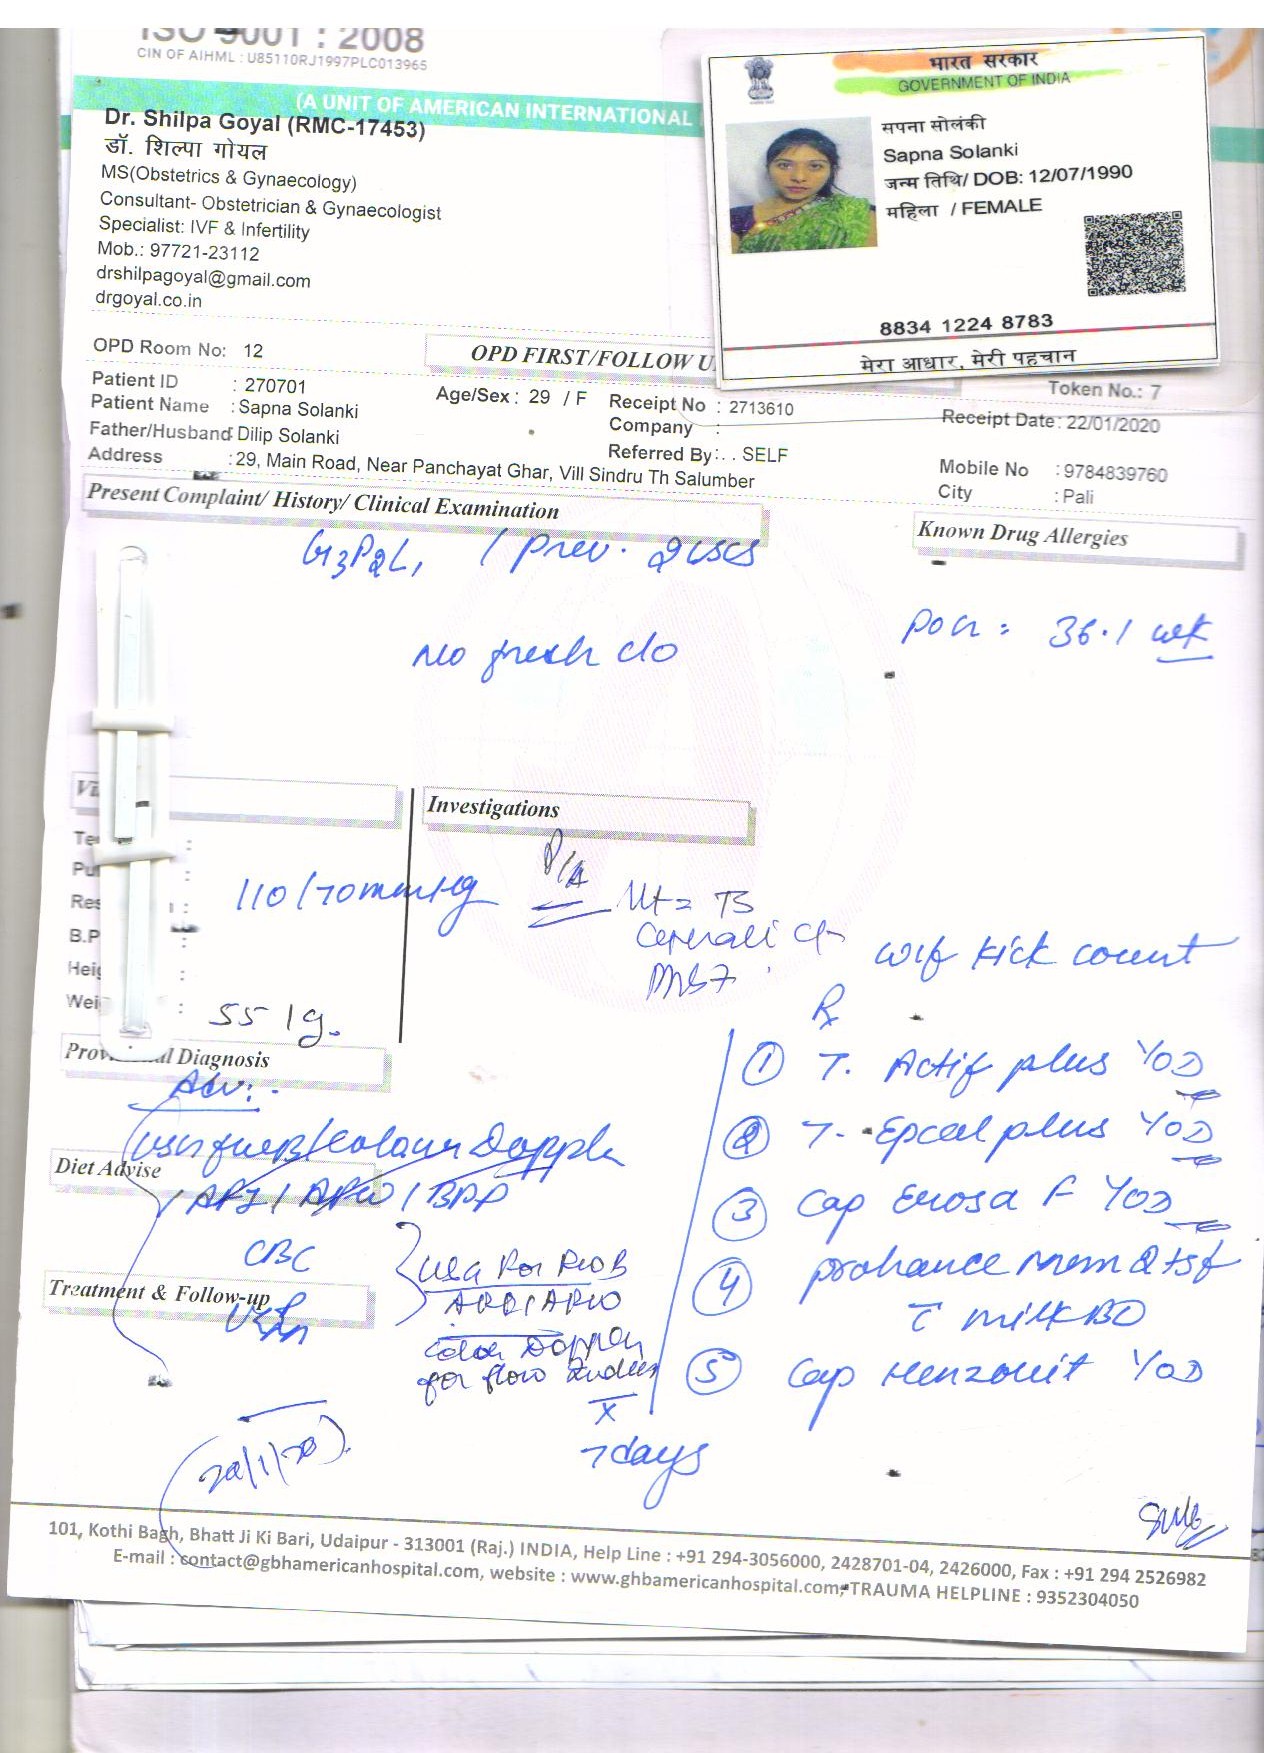 ISO 9001 : 2008
CIN OF AIHML : U85110RJ1997PLC013965
(A UNIT OF AMERICAN INTERNATIONAL
Dr. Shilpa Goyal (RMC-17453)
डॉ. शिल्पा गोयल
MS(Obstetrics & Gynaecology)
Consultant- Obstetrician & Gynaecologist
Specialist: IVF & Infertility
Mob.: 97721-23112
drshilpagoyal@gmail.com
drgoyal.co.in
भारत सरकार
GOVERNMENT OF INDIA
सपना सोलंकी
Sapna Solanki
जन्म तिथि/ DOB: 12/07/1990
महिला / FEMALE
8834 1224 8783
मेरा आधार, मेरी पहचान
OPD Room No: 12
OPD FIRST/FOLLOW U
Token No.: 7
Patient ID : 270701
Age/Sex : 29 / F
Receipt No : 2713610
Receipt Date: 22/01/2020
Patient Name : Sapna Solanki
Company :
Father/Husband: Dilip Solanki
Referred By: . . SELF
Mobile No : 9784839760
Address : 29, Main Road, Near Panchayat Ghar, Vill Sindru Th Salumber
City : Pali
Present Complaint/ History/ Clinical Examination
Known Drug Allergies
G3P2L1 / prev. 2 LSCS
POG = 36.1 wk
No fresh c/o
Vi
Investigations
Te :
Pu :
Res :
B.P :
Heig :
Wei :
110/70mmHg
P/A
Ut = TS
Cephalic
FHS
55 kg.
wif kick count
Rx
Prov al Diagnosis
Adv:-
Colour Doppler
Diet Advise
/ AFI / / BPP
CBC
Treatment & Follow-up
USG For
Color Doppler
for flow Studies
① T. Actif plus
② T. plus
③ Cap F
④ prohance mom 2 tsf
c milk BD
⑤ Cap
x
7 days
101, Kothi Bagh, Bhatt Ji Ki Bari, Udaipur - 313001 (Raj.) INDIA, Help Line : +91 294-3056000, 2428701-04, 2426000, Fax : +91 294 2526982
E-mail : contact@gbhamericanhospital.com, website : www.ghbamericanhospital.com, TRAUMA HELPLINE : 9352304050